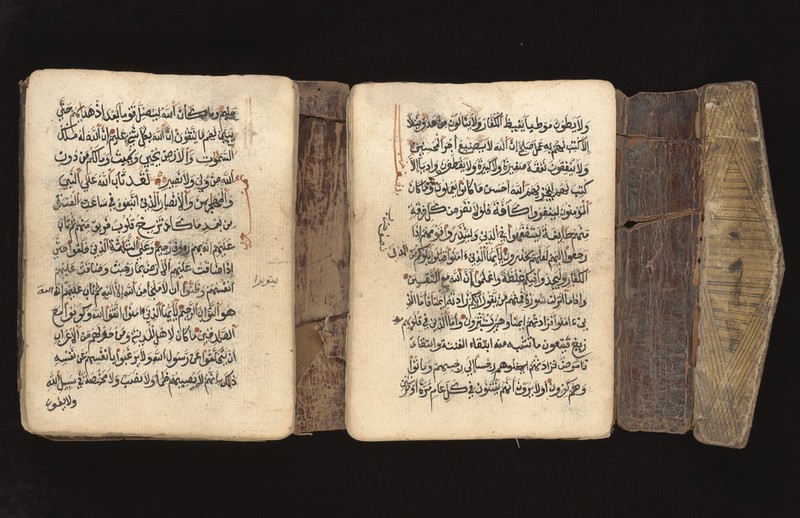 عليم وما كان الله ليضل قوما بعد اذ هديهم حتى
يبين لهم ما يتقون ان الله بكل شيء عليم ان الله له ملك
السموات والارض يحي ويميت وما لكم من دون
الله من ولي ولا نصير لقد تاب الله على النبي
والمهجرين والانصار الذين اتبعوه في ساعت العسرة
من بعد ما كاد تزيغ قلوب فريق منهم ثم تاب
عليهم انه بهم روف رحيم وعلى الثلثة الذين خلفوا حتى
اذا ضاقت عليهم الارض بما رحبت وضاقت عليهم
انفسهم وظنوا ان لا ملجا من الله الا اليه ثم تاب عليهم ان الله
ليتوبوا
هو التواب الرحيم يايها الذين ءامنوا اتقوا الله وكونوا مع
الصدقين ما كان لاهل المدينة ومن حولهم من الاعراب
ان يتخلفوا عن رسول الله ولا يرغبوا بانفسهم عن نفسه
ذلك بانهم لا يصيبهم ظما ولا نصب ولا مخمصة في سبيل الله
ولا يطون
ولا يطون موطيا يغيظ الكفار ولا ينالون من عدو نيلا
الا كتب لهم به عمل صلح ان الله لا يضيع اجر المحسنين
ولا ينفقون نفقة صغيرة ولا كبيرة ولا يقطعون واديا الا
كتب لهم ليجزيهم الله احسن ما كانوا يعملون وما كان
المؤمنون لينفروا كافة فلولا نفر من كل فرقة
منهم طايفة ليتفقهوا في الدين ولينذروا قومهم اذا
رجعوا اليهم لعلهم يحذرون يايها الذين ءامنوا قتلوا الذين يلونكم من
الكفار وليجدوا فيكم غلظة واعلموا ان الله مع المتقين
واذا ما انزلت سورة فمنهم من يقول ايكم زادته هذه ايمنا فاما الذين
ءامنوا فزادتهم ايمنا وهم يستبشرون واما الذين في قلوبهم
مرض فزادتهم رجسا الى رجسهم وماتوا
وهم كفرون اولا يرون انهم يفتنون في كل عام مرة او مرتين